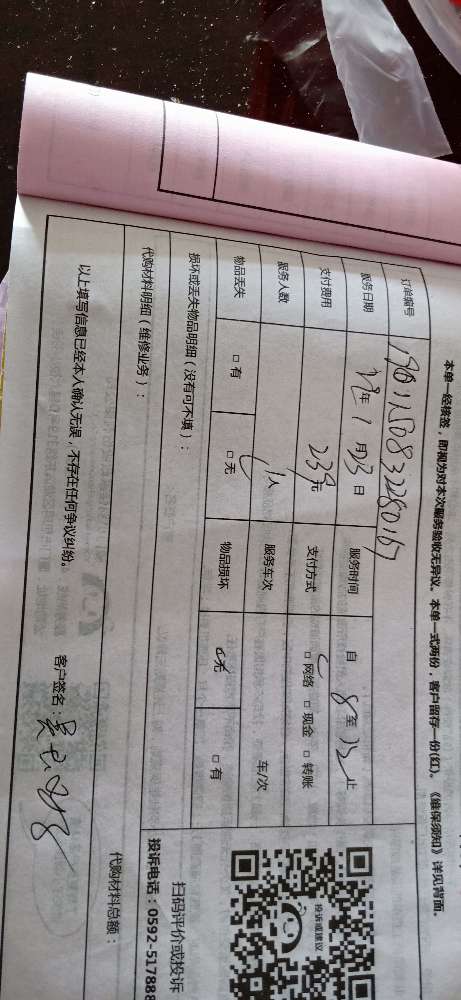 本单一经核签，即视为对本次服务验收无异议。本单一式两份，客户留存一份(红)。《维保须知》详见背面。
订单编号
服务日期 19年1月23日 服务时间 自 8 至 12 止
支付费用 239元 支付方式 □网络 □现金 □转账
服务人数 1人 服务车次 车/次
物品丢失 □有 □无 物品损坏 □无 □有
损坏或丢失物品明细（没有可不填）：
代购材料明细（维修业务）：
代购材料总额：
以上填写信息已经本人确认无误，不存在任何争议纠纷。 客户签名：
投诉或建议
扫码评价或投诉
投诉电话：0592-517888